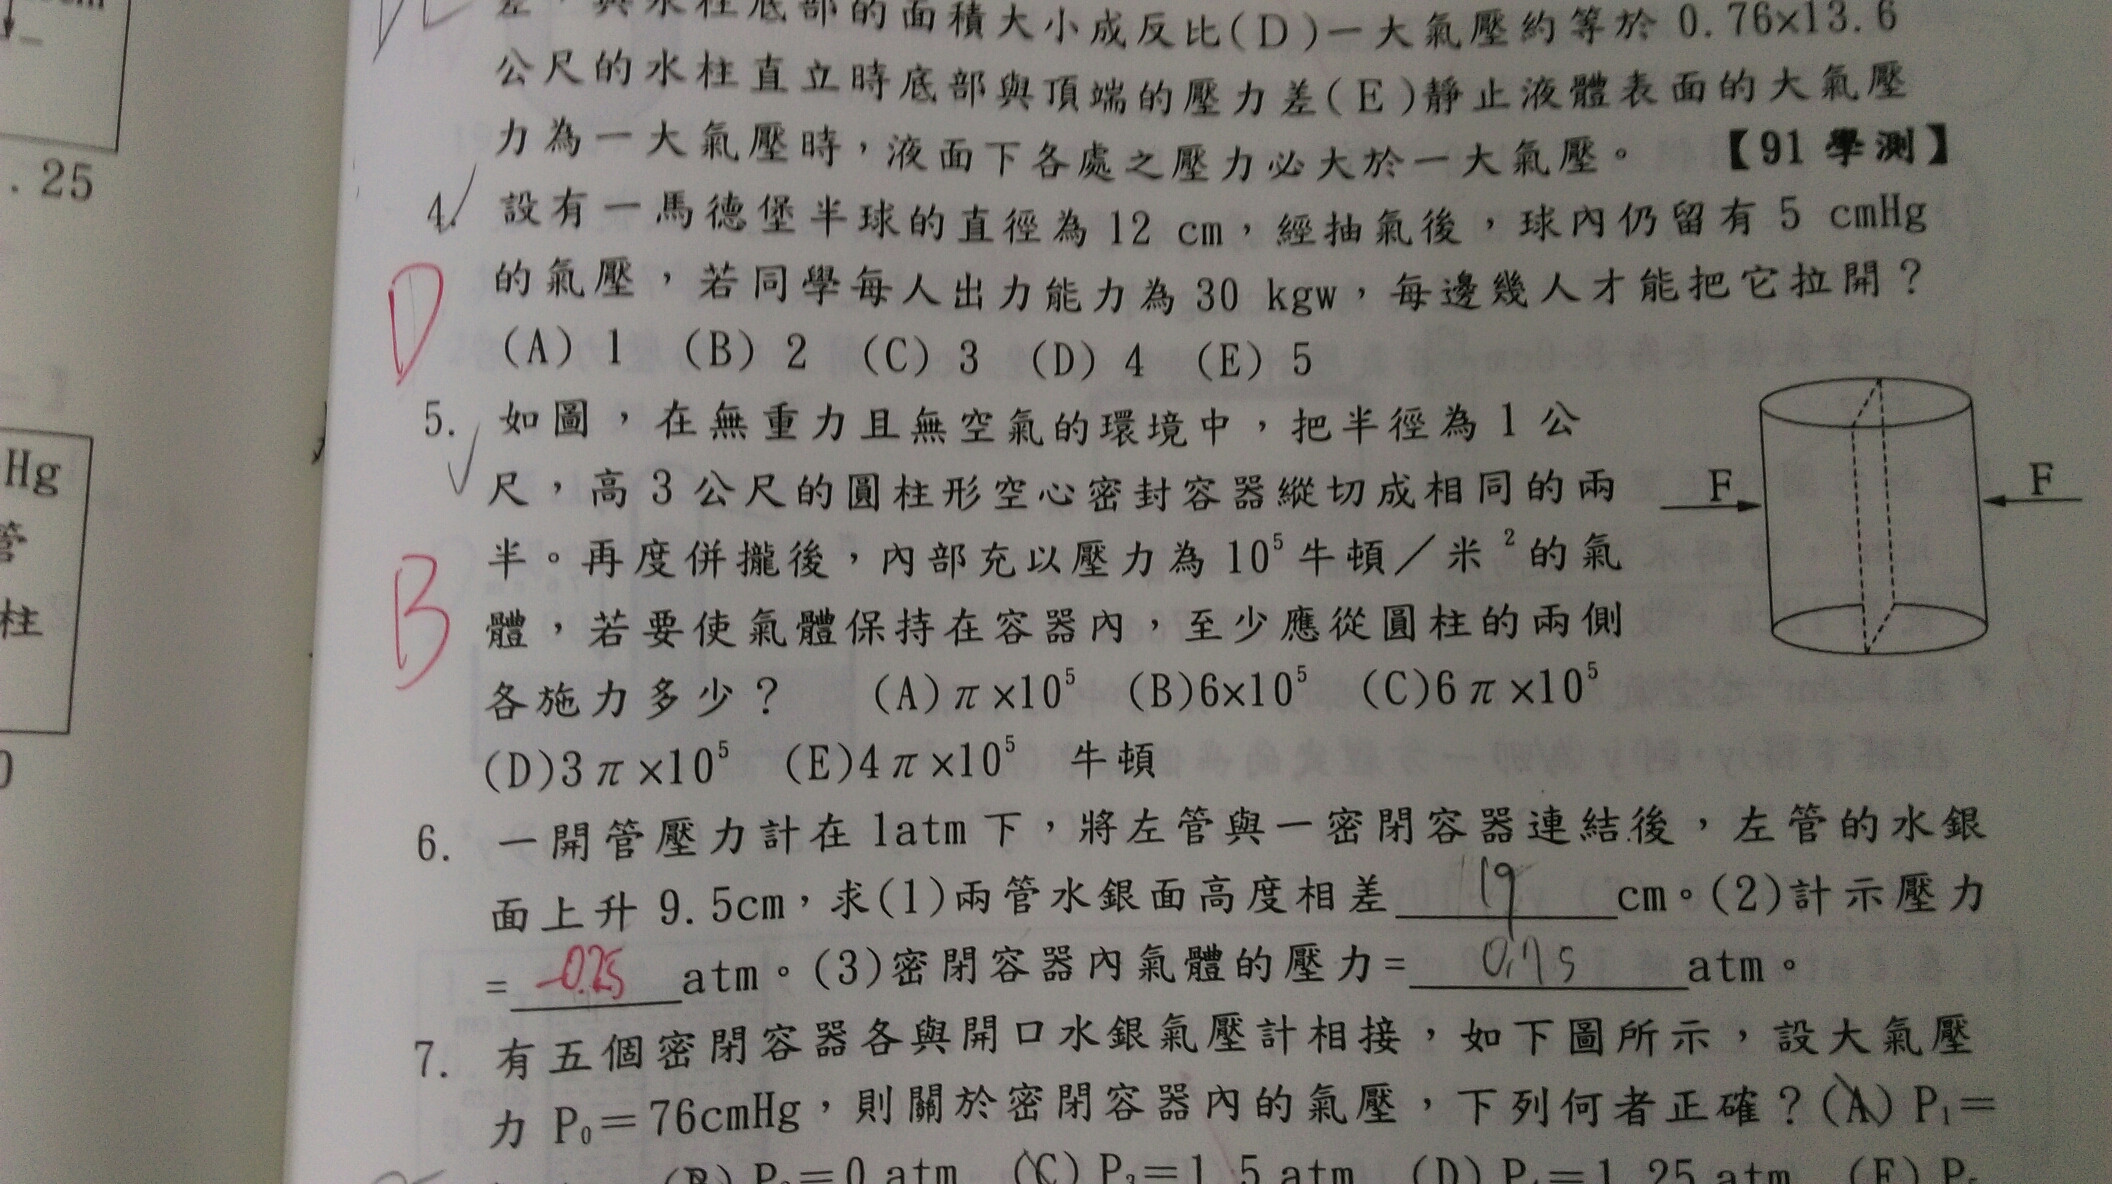 .25
Hg
管
柱
差，與水柱底部的面積大小成反比(D)一大氣壓約等於 0.76×13.6
公尺的水柱直立時底部與頂端的壓力差(E)靜止液體表面的大氣壓
力為一大氣壓時，液面下各處之壓力必大於一大氣壓。 【91 學測】
4. 設有一馬德堡半球的直徑為 12 cm，經抽氣後，球內仍留有 5 cmHg
的氣壓，若同學每人出力能力為 30 kgw，每邊幾人才能把它拉開？
D
(A) 1 (B) 2 (C) 3 (D) 4 (E) 5
5. 如圖，在無重力且無空氣的環境中，把半徑為 1 公
尺，高 3 公尺的圓柱形空心密封容器縱切成相同的兩
半。再度併攏後，內部充以壓力為 10⁵ 牛頓／米²的氣
B
體，若要使氣體保持在容器內，至少應從圓柱的兩側
各施力多少？ (A)π×10⁵ (B)6×10⁵ (C)6π×10⁵
(D)3π×10⁵ (E)4π×10⁵ 牛頓
F
F
6. 一開管壓力計在 1atm 下，將左管與一密閉容器連結後，左管的水銀
面上升 9.5cm，求(1)兩管水銀面高度相差 19 cm。(2)計示壓力
= -0.25 atm。(3)密閉容器內氣體的壓力= 0.75 atm。
7. 有五個密閉容器各與開口水銀氣壓計相接，如下圖所示，設大氣壓
力 P₀＝76cmHg，則關於密閉容器內的氣壓，下列何者正確？(A) P₁＝
(B) P₂＝0 atm (C) P₃＝1.5 atm (D) P₄＝1.25 atm (E) P₅